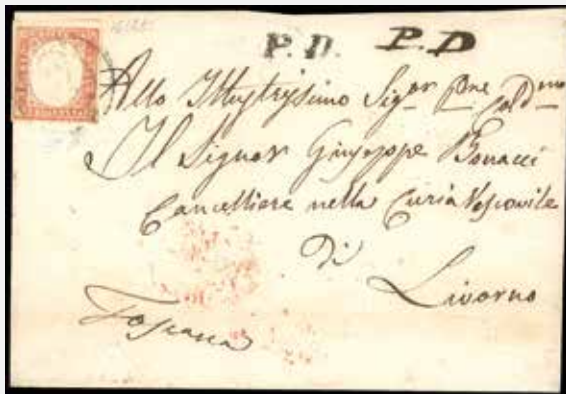 P.D. P.D
Allo Illustrissimo Sig.or P.one Col.dmo
Il Signor Giuseppe Bonacci
Cancelliere nella Curia Vescovile
di
Livorno
Toscana